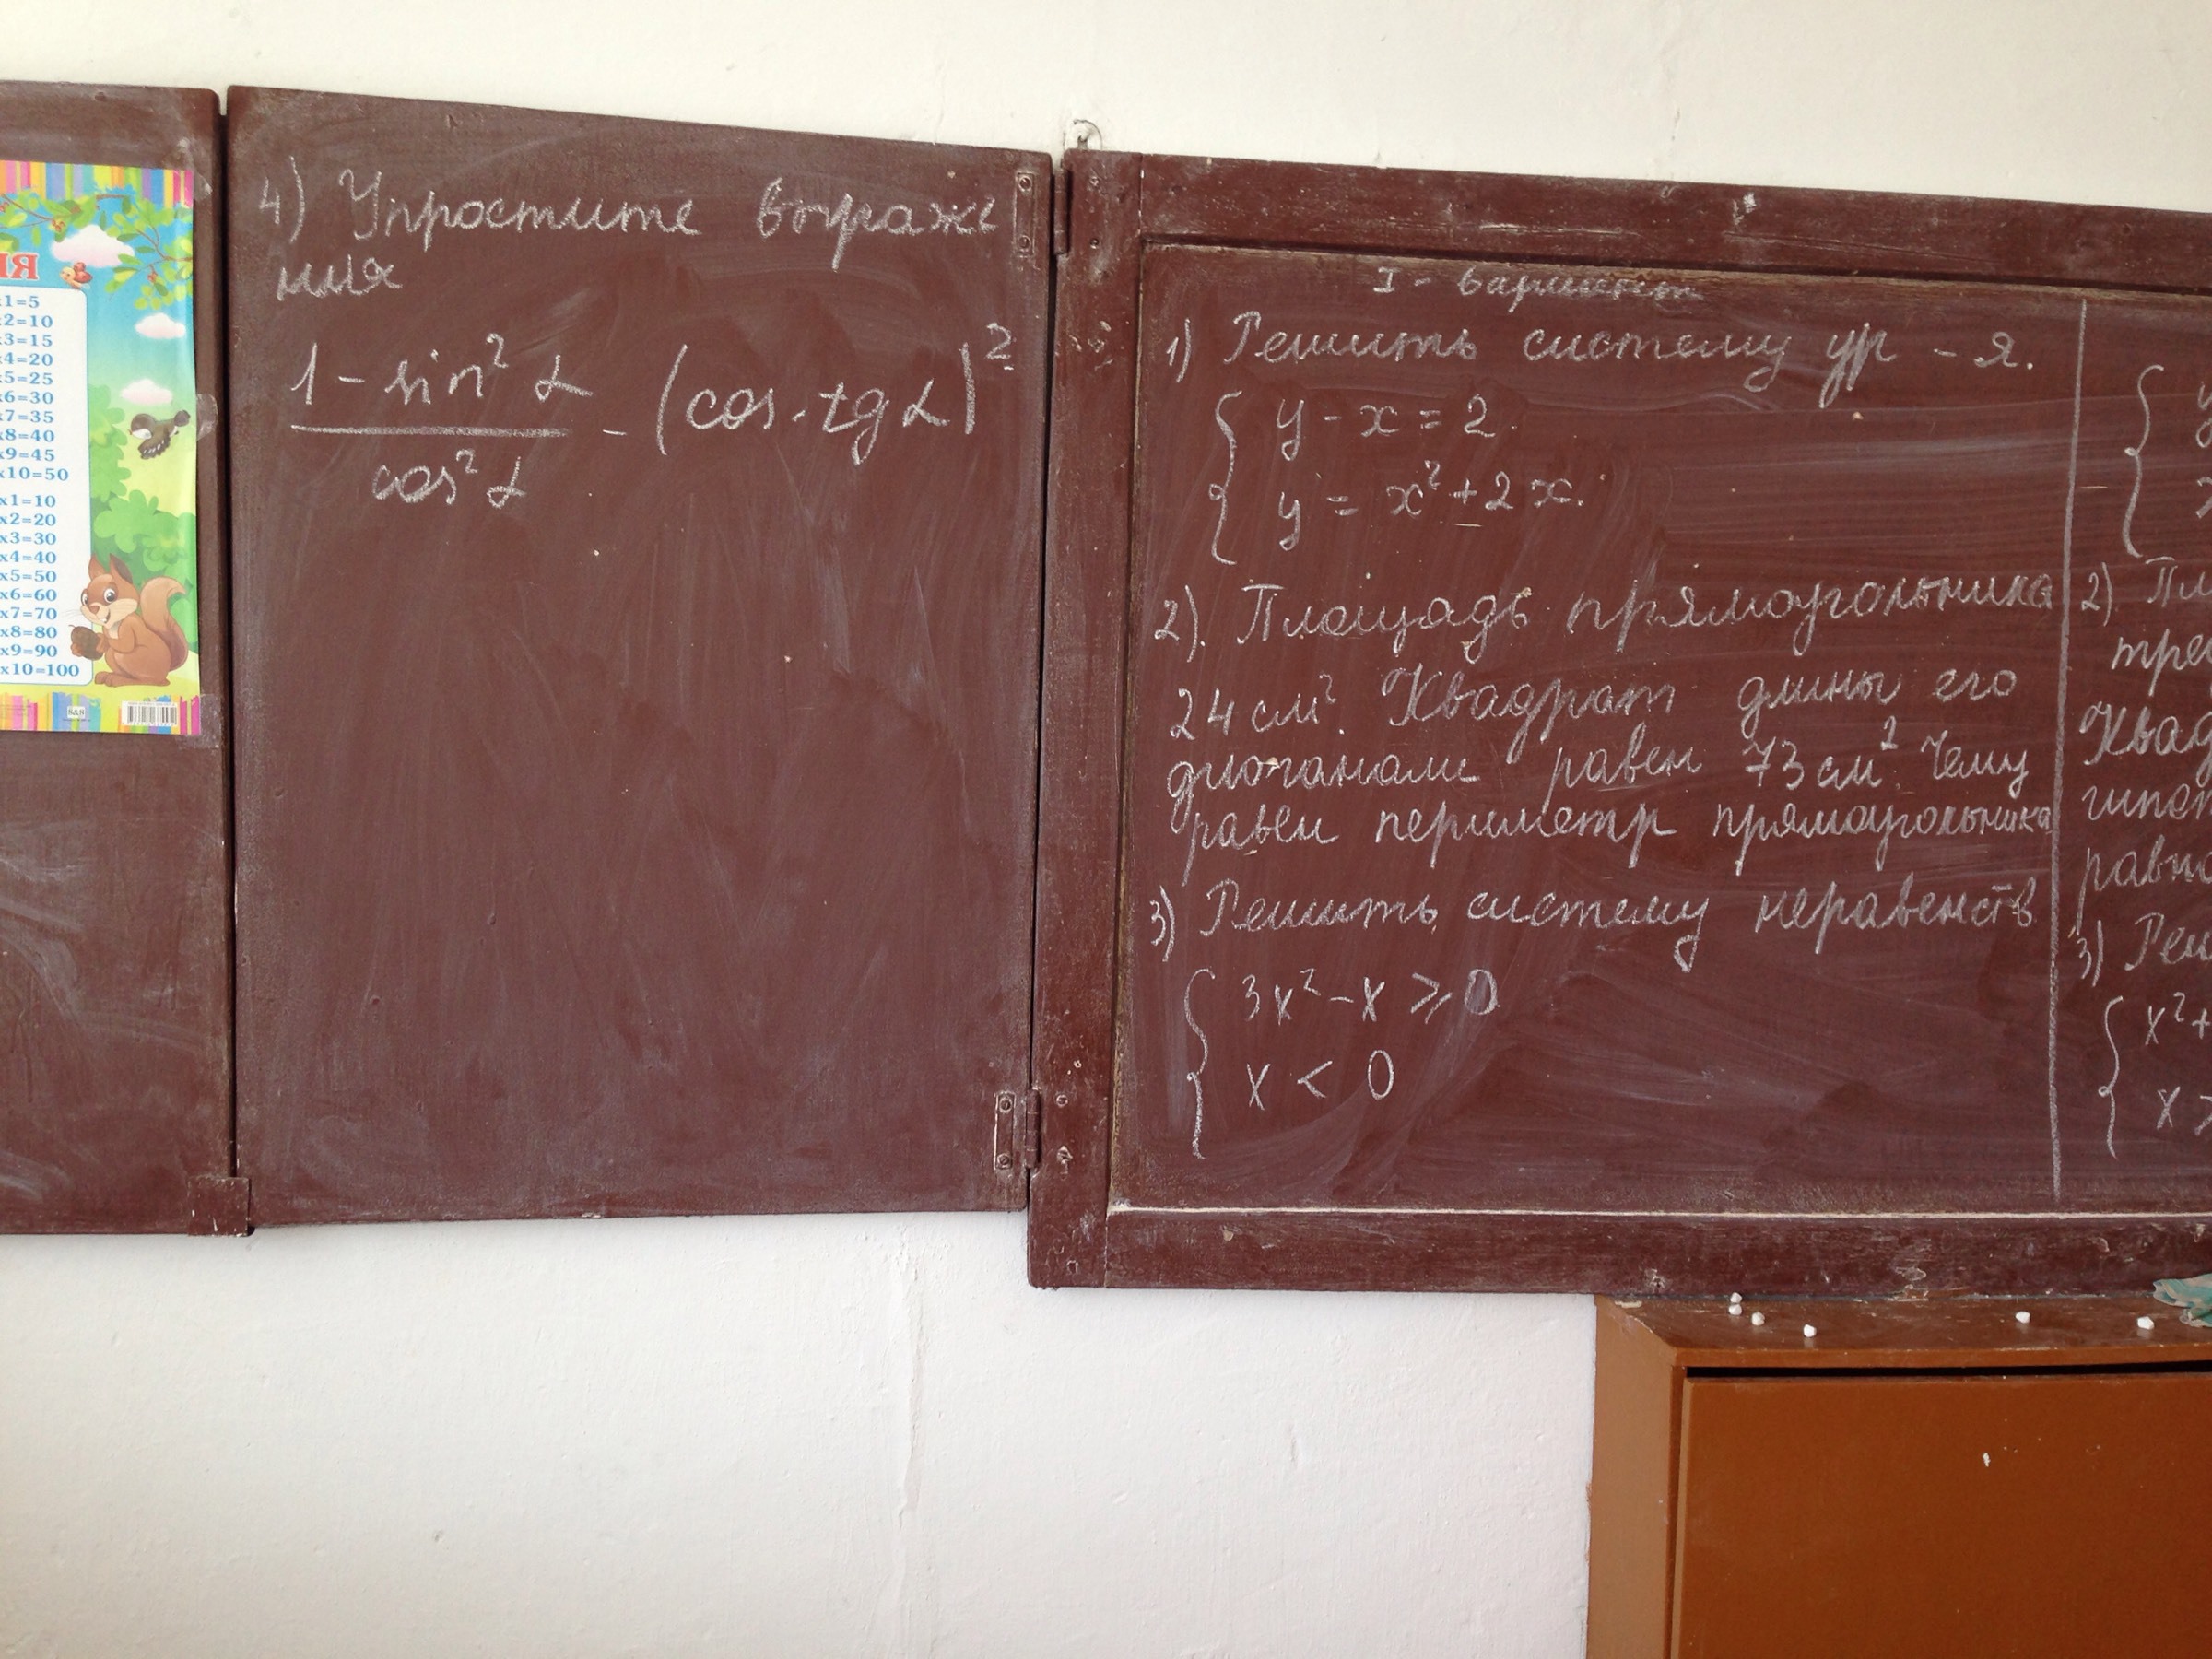 ия
x1=5
x2=10
x3=15
x4=20
x5=25
x6=30
x7=35
x8=40
x9=45
x10=50
x1=10
x2=20
x3=30
x4=40
x5=50
x6=60
x7=70
x8=80
x9=90
x10=100
4) Упростите выраже
ния
1 - sin² α
cos² α
- (cos · tg α)²
I - вариант
1) Решить систему ур - я.
{ y - x = 2.
y = x² + 2x.
2). Площадь прямоугольника
24 см². Квадрат длины его
диоганали равен 73 см². Чему
равен периметр прямоугольника
3) Решить систему неравенств
{ 3x² - x ⩾ 0
x < 0
{ y
2). Пл
тре
Квад
гипот
равно
3) Реш
{ x² +
x >